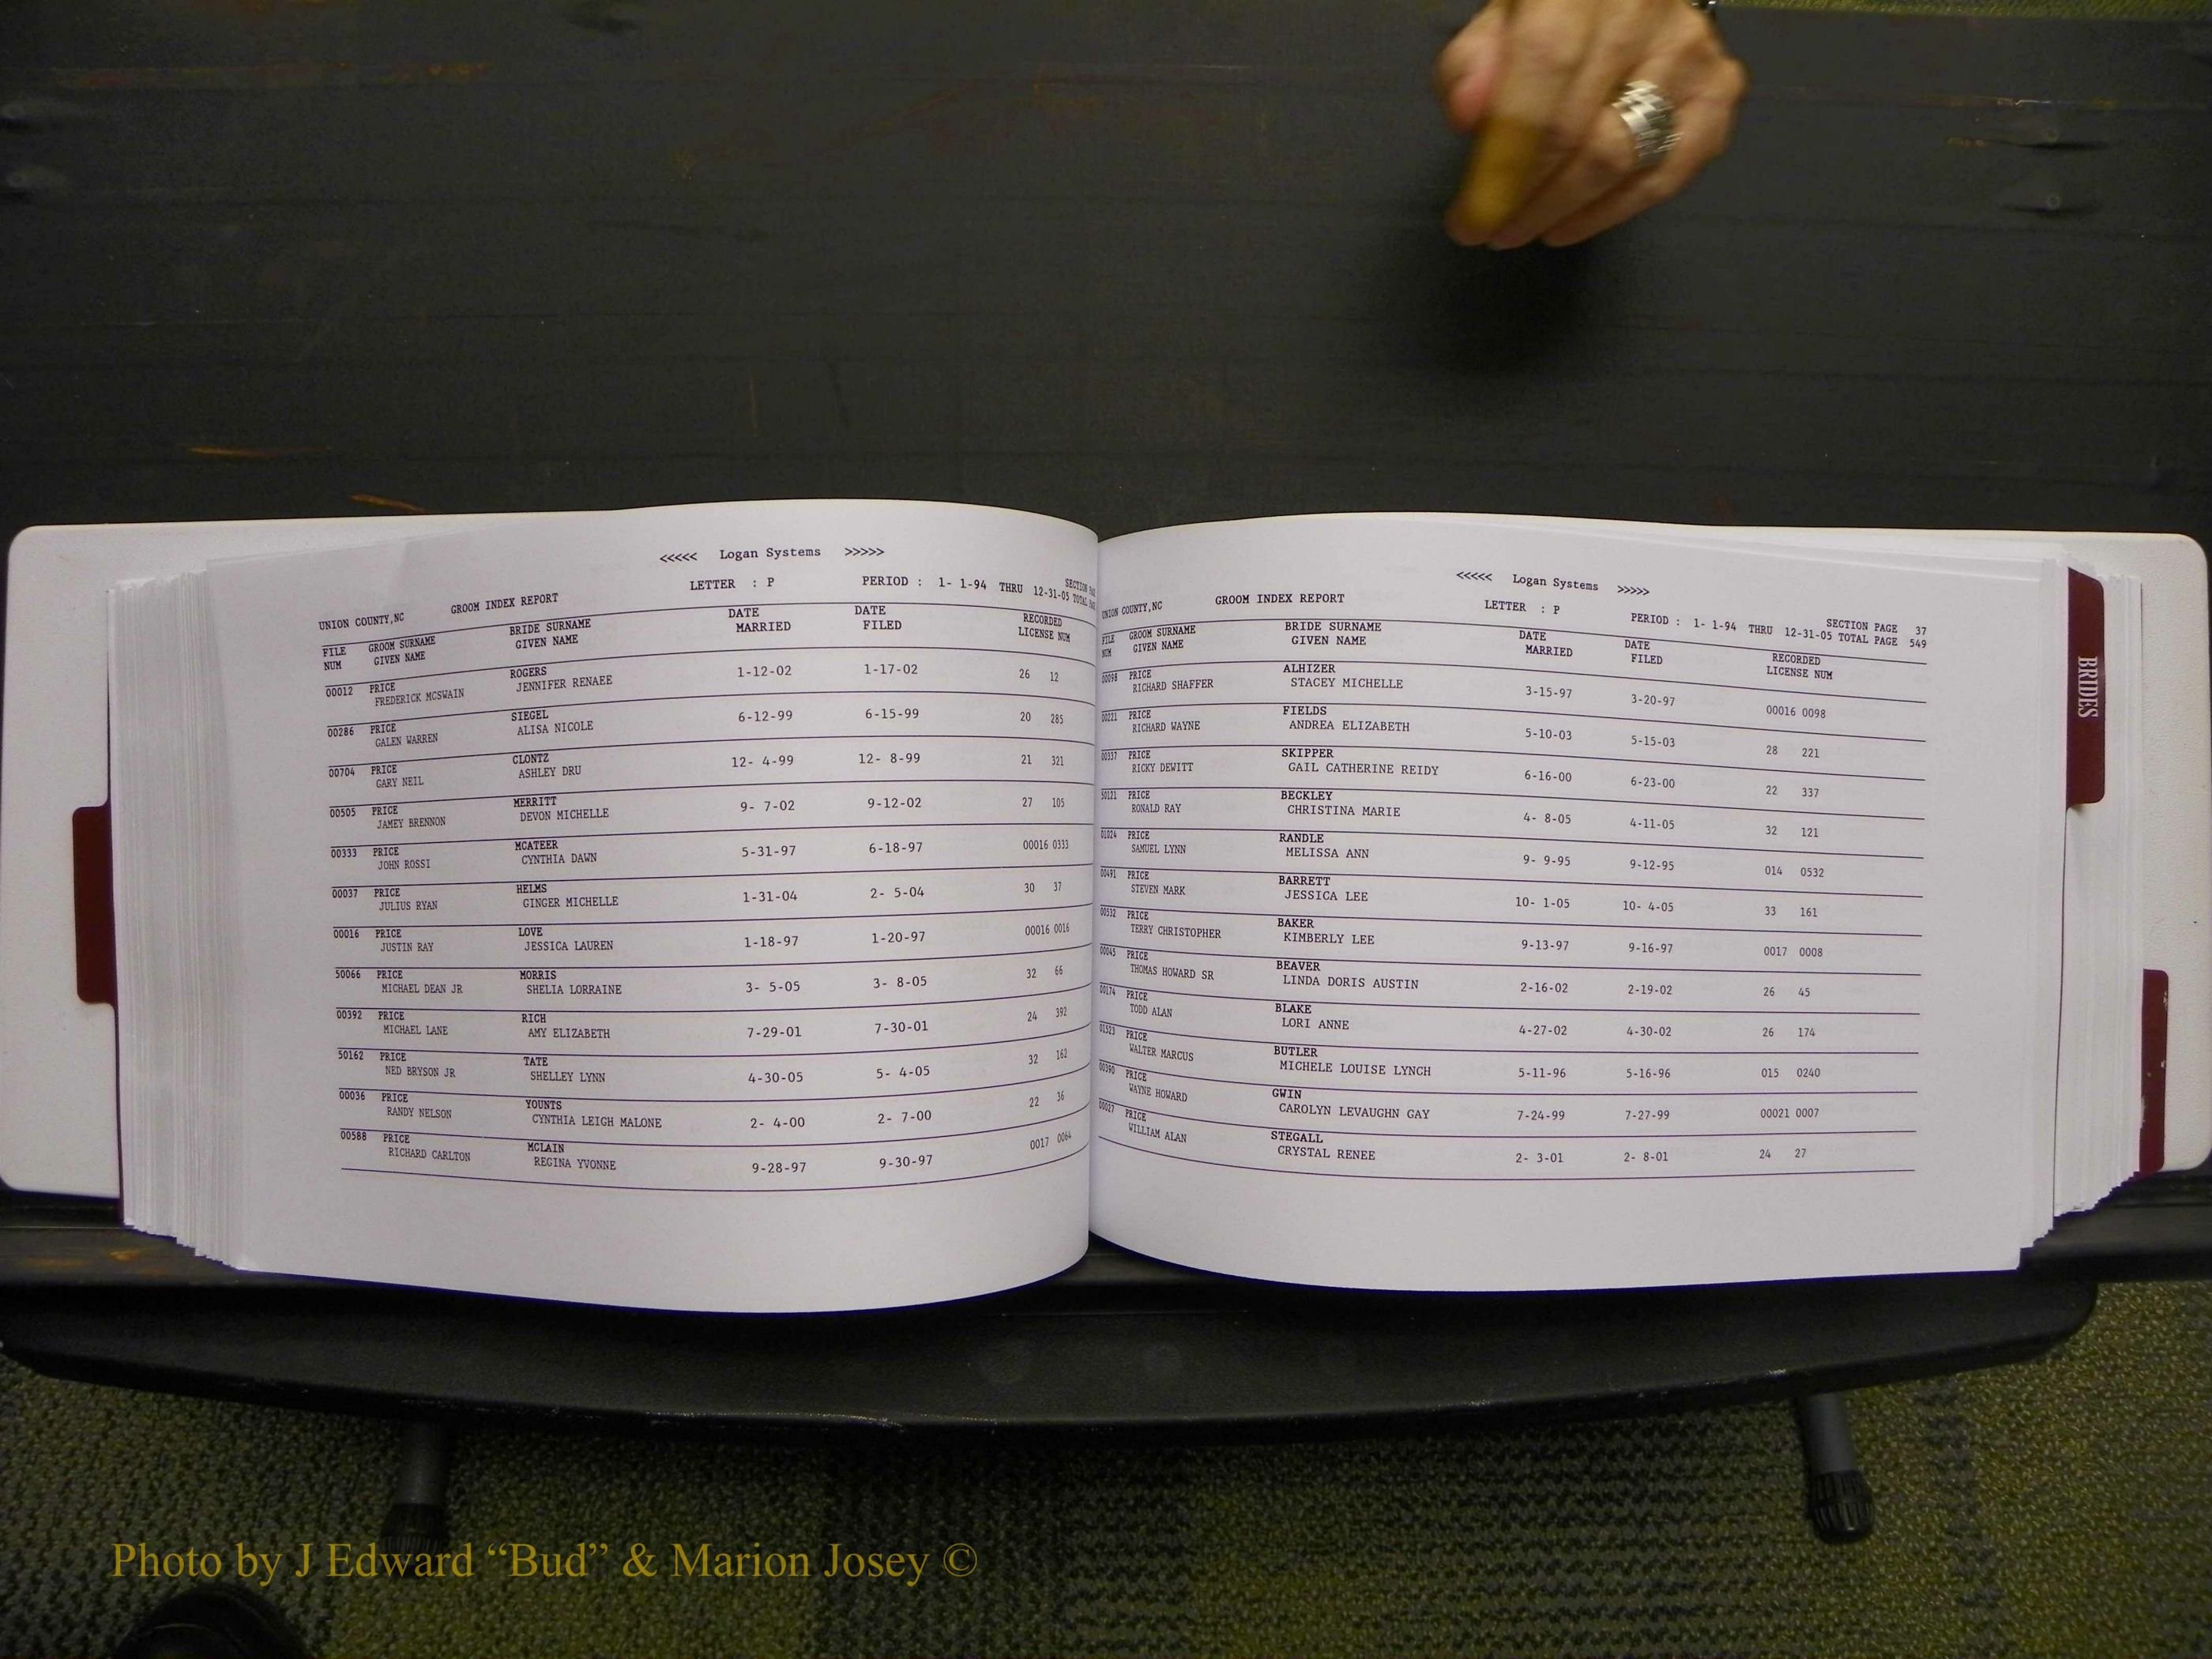 <<<<< Logan Systems >>>>>
UNION COUNTY,NC GROOM INDEX REPORT LETTER : P PERIOD : 1- 1-94 THRU 12-31-05 SECTION TOTAL
FILE NUM GROOM SURNAME GIVEN NAME BRIDE SURNAME GIVEN NAME DATE MARRIED DATE FILED RECORDED LICENSE NUM
00012 PRICE ROGERS 1-12-02 1-17-02 26 12
FREDERICK MCSWAIN JENNIFER RENAEE
00286 PRICE SIEGEL 6-12-99 6-15-99 20 285
GALEN WARREN ALISA NICOLE
00704 PRICE CLONTZ 12- 4-99 12- 8-99 21 321
GARY NEIL ASHLEY DRU
00505 PRICE MERRITT 9- 7-02 9-12-02 27 105
JAMEY BRENNON DEVON MICHELLE
00333 PRICE MCATEER 5-31-97 6-18-97 00016 0333
JOHN ROSSI CYNTHIA DAWN
00037 PRICE HELMS 1-31-04 2- 5-04 30 37
JULIUS RYAN GINGER MICHELLE
00016 PRICE LOVE 1-18-97 1-20-97 00016 0016
JUSTIN RAY JESSICA LAUREN
50066 PRICE MORRIS 3- 5-05 3- 8-05 32 66
MICHAEL DEAN JR SHELIA LORRAINE
00392 PRICE RICH 7-29-01 7-30-01 24 392
MICHAEL LANE AMY ELIZABETH
50162 PRICE TATE 4-30-05 5- 4-05 32 162
NED BRYSON JR SHELLEY LYNN
00036 PRICE YOUNTS 2- 4-00 2- 7-00 22 36
RANDY NELSON CYNTHIA LEIGH MALONE
00588 PRICE MCLAIN 9-28-97 9-30-97 0017 0064
RICHARD CARLTON REGINA YVONNE
<<<<< Logan Systems >>>>>
UNION COUNTY,NC GROOM INDEX REPORT LETTER : P PERIOD : 1- 1-94 THRU 12-31-05 SECTION PAGE 37
TOTAL PAGE 549
FILE NUM GROOM SURNAME GIVEN NAME BRIDE SURNAME GIVEN NAME DATE MARRIED DATE FILED RECORDED LICENSE NUM
00098 PRICE ALHIZER 3-15-97 3-20-97 00016 0098
RICHARD SHAFFER STACEY MICHELLE
00221 PRICE FIELDS 5-10-03 5-15-03 28 221
RICHARD WAYNE ANDREA ELIZABETH
00337 PRICE SKIPPER 6-16-00 6-23-00 22 337
RICKY DEWITT GAIL CATHERINE REIDY
50121 PRICE BECKLEY 4- 8-05 4-11-05 32 121
RONALD RAY CHRISTINA MARIE
01024 PRICE RANDLE 9- 9-95 9-12-95 014 0532
SAMUEL LYNN MELISSA ANN
00491 PRICE BARRETT 10- 1-05 10- 4-05 33 161
STEVEN MARK JESSICA LEE
00532 PRICE BAKER 9-13-97 9-16-97 0017 0008
TERRY CHRISTOPHER KIMBERLY LEE
00045 PRICE BEAVER 2-16-02 2-19-02 26 45
THOMAS HOWARD SR LINDA DORIS AUSTIN
00174 PRICE BLAKE 4-27-02 4-30-02 26 174
TODD ALAN LORI ANNE
01523 PRICE BUTLER 5-11-96 5-16-96 015 0240
WALTER MARCUS MICHELE LOUISE LYNCH
00390 PRICE GWIN 7-24-99 7-27-99 00021 0007
WAYNE HOWARD CAROLYN LEVAUGHN GAY
00027 PRICE STEGALL 2- 3-01 2- 8-01 24 27
WILLIAM ALAN CRYSTAL RENEE
BRIDES
Photo by J Edward “Bud” & Marion Josey ©